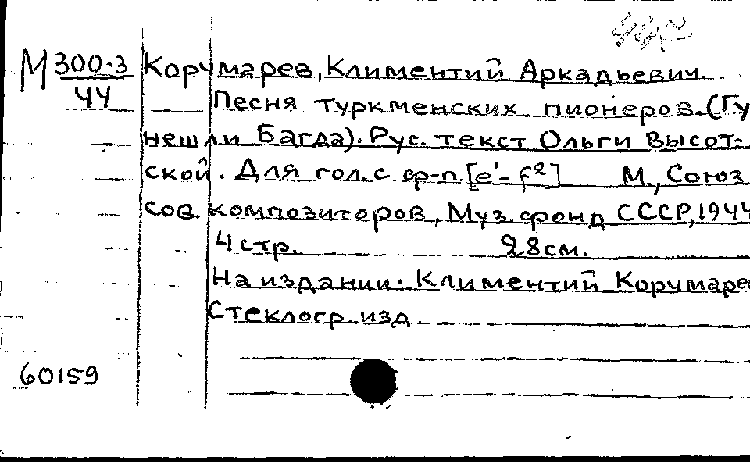 М 300-3 Корчмарев, Климентий Аркадьевич.
44 Песня туркменских пионеров. (Гу
нешли Багда). Рус. текст Ольги Высот-
ской. Для гол. с ф-п. [e¹-f²] М., Союз
сов. композиторов, Муз. фонд СССР, 1944
4 стр. 28 см.
На издании: Климентий Корчмарев
Стеклогр. изд.
60159